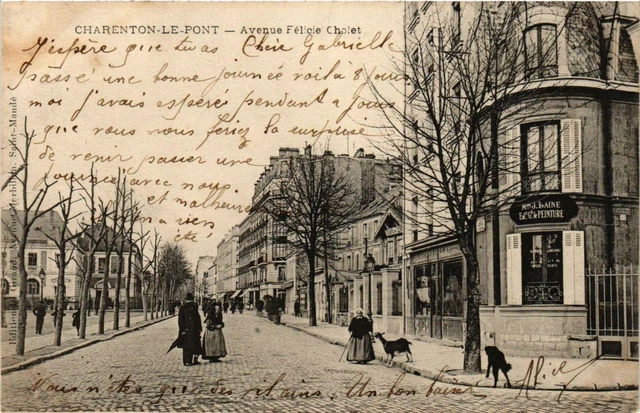 CHARENTON-LE-PONT — Avenue Félicie Cholet
Chère Gabrielle
J'espère que tu as
passé une bonne journée voilà 8 jours
moi j'avais espéré pendant 2 jours
que vous nous feriez la surprise
de venir passer une
journée avec nous
et malheureusement
rien
été
Mon J. LAINE
PEINTURE
Vous n'êtes que des vilains. Un bon baiser
Alice
Saint-Mandé